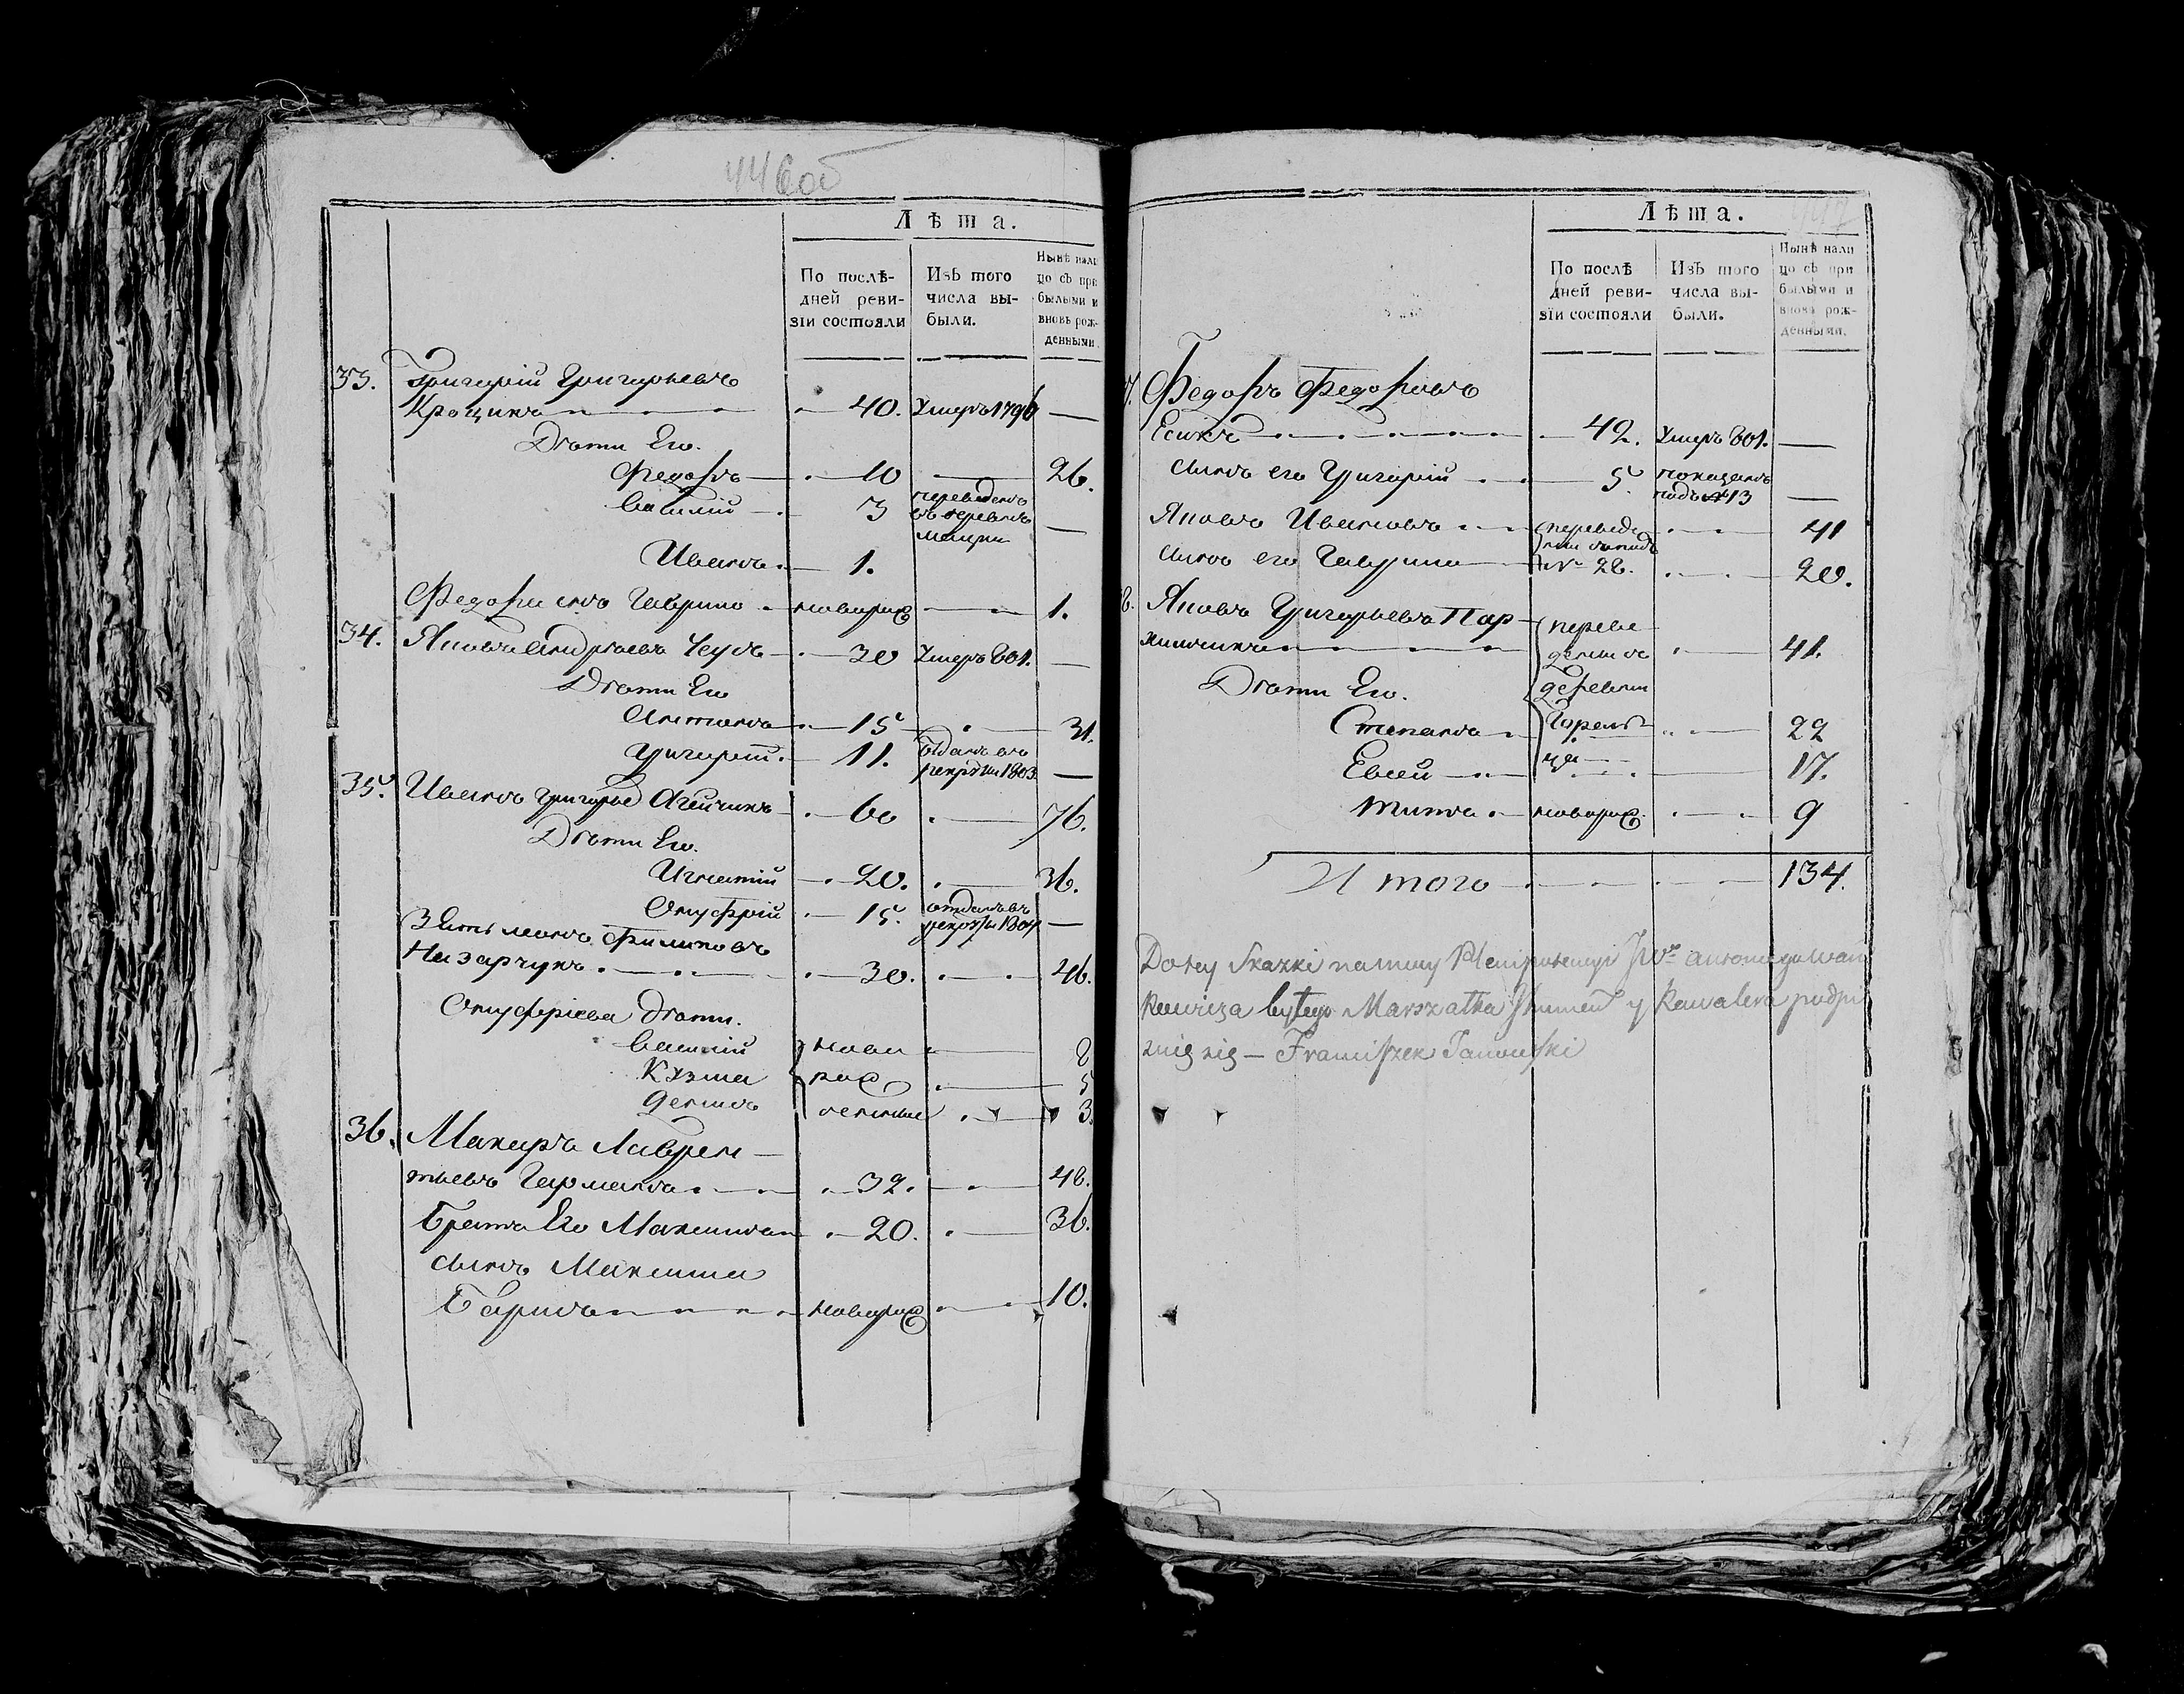 446об
Лѣта.
По послѣ-
дней реви-
зіи состояли
Изъ того
числа вы-
были.
Нынѣ нали
цо съ при
былыми и
вновь рож-
денными.
33. Григорій Григорьевъ
Крощикъ 40. Умеръ 1796 —
Дѣти Его.
Федоръ 10 — 26.
Василій 3 переведенъ
въ деревню —
Иванъ 1.
Федора сынъ Гаврило новорож — 1.
34. Яковъ Андрѣевъ Чусъ 30 Умеръ 801. —
Дѣти Его
Антонъ 15 31.
Григорій 11. отданъ въ
рекруты 1803 —
35. Иванъ Григорьев Агейчикъ 60 76.
Дѣти Его.
Игнатій 20. 36.
Онуфрій 15. отданъ въ
рекруты 1804 —
Зять Филиповъ
Назарчукъ 30. 46.
Онуфріева дѣти.
Василій ново 8
Кузма рож 5
Денисъ денные 3.
36. Макаръ Лаврен-
тьевъ Германъ 32. 48.
Братъ Его Максимъ 20. 36.
Сынъ Максима
Борисъ новорож 10.
Лѣта. 447
По послѣ
дней реви-
зіи состояли
Изъ того
числа вы-
были.
Нынѣ нали
цо съ при
былыми и
вновь рож-
денными.
7. Федоръ Федоровъ
Есикъ 42. Умеръ 801. —
Сынъ его Григорій 5. показанъ
подъ № 13 —
Яковъ Ивановъ переведе 41
Сынъ его Гаврило № 28. 20.
8. Яковъ Григорьевъ Пар- переве
химчикъ дены съ 41.
Дѣти Его. деревни
Степанъ 22
Евсей 17.
Титъ новорож 9
Итого 134.
Do tey Skazki na mocy Plenipotencyi JW° Antoniego Wań
kowicza byłego Marszałka Ihumeń y Kawalera podpi
suię się — Franciszek Janowski